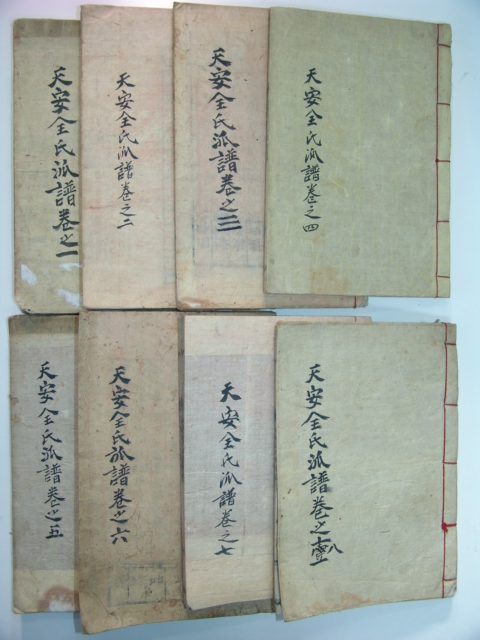 天安全氏派譜卷之一
天安全氏派譜卷之二
天安全氏派譜卷之三
天安全氏派譜卷之四
天安全氏派譜卷之五
天安全氏派譜卷之六
天安全氏派譜卷之七
天安全氏派譜卷之八